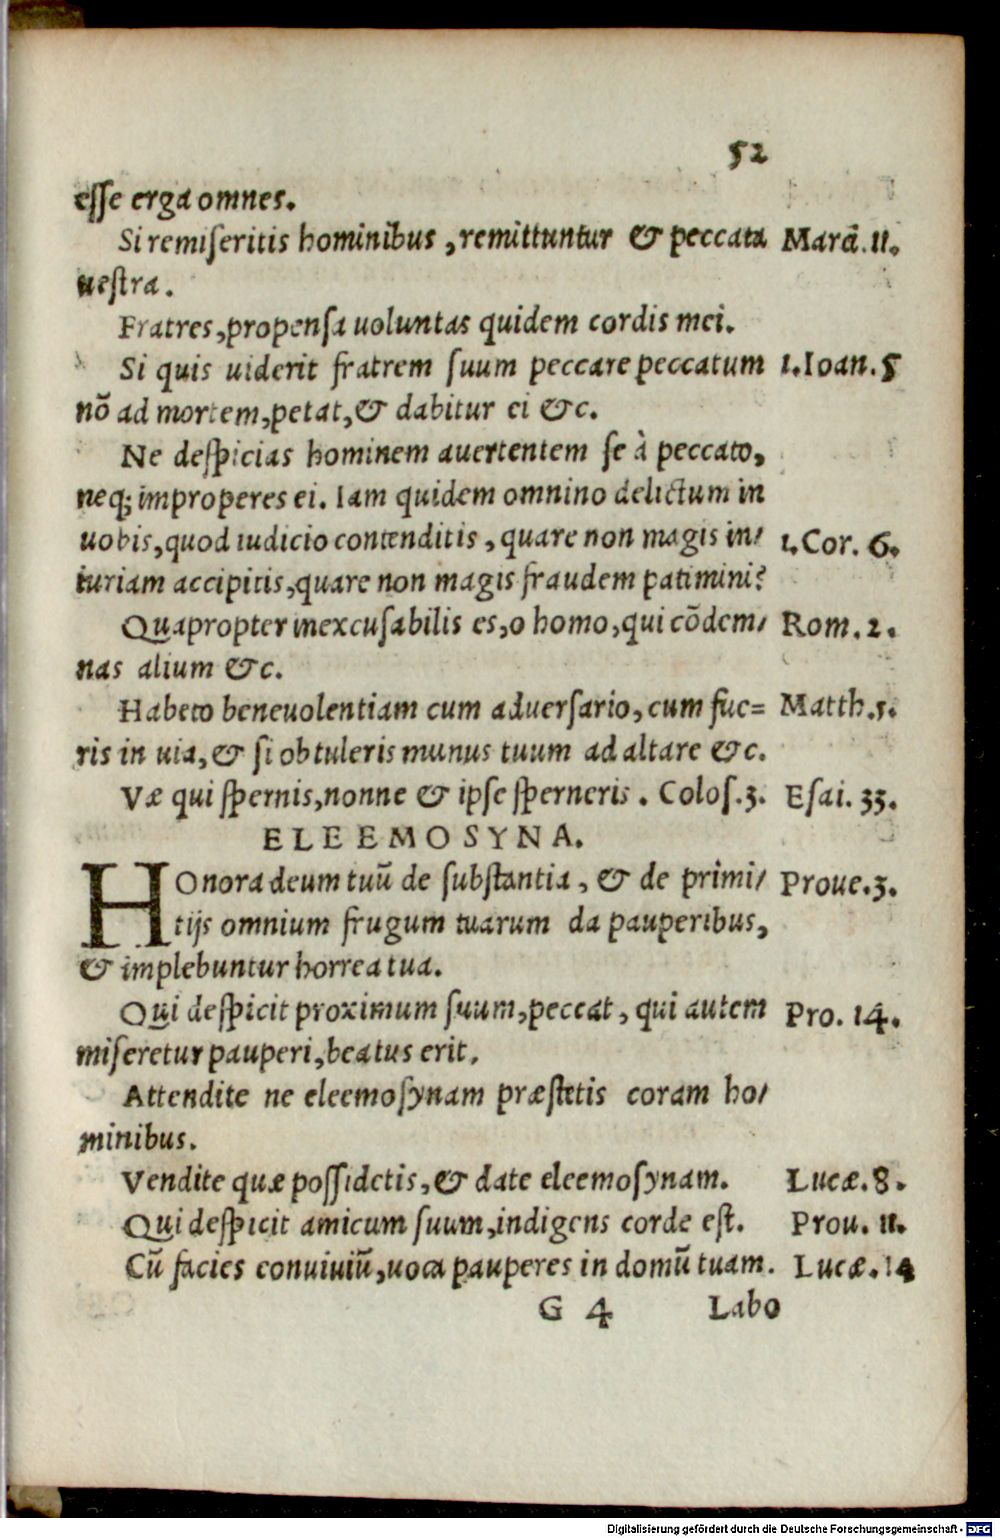 52
esse erga omnes.
Si remiseritis hominibus, remittuntur & peccata Marā. 11.
uestra.
Fratres, propensa uoluntas quidem cordis mei.
Si quis uiderit fratrem suum peccare peccatum 1. Ioan. 5
nō ad mortem, petat, & dabitur ei &c.
Ne despicias hominem auertentem se à peccato,
neq; improperes ei. Iam quidem omnino delictum in
uobis, quod iudicio contenditis, quare non magis in/ 1. Cor. 6.
iuriam accipitis, quare non magis fraudem patimini?
Quapropter inexcusabilis es, o homo, qui cōdem/ Rom. 2.
nas alium &c.
Habeto beneuolentiam cum aduersario, cum fue= Matth. 5.
ris in uia, & si obtuleris munus tuum ad altare &c.
Væ qui spernis, nonne & ipse sperneris. Colos. 3. Esai. 33.
ELEEMOSYNA.
HOnora deum tuū de substantia, & de primi/ Proue. 3.
tijs omnium frugum tuarum da pauperibus,
& implebuntur horrea tua.
Qui despicit proximum suum, peccat, qui autem Pro. 14.
miseretur pauperi, beatus erit.
Attendite ne eleemosynam præstetis coram ho/
minibus.
Vendite quæ possidetis, & date eleemosynam. Lucæ. 8.
Qui despicit amicum suum, indigens corde est. Prou. 11.
Cū facies conuiuiū, uoca pauperes in domū tuam. Lucæ. 14
G 4 Labo
Digitalisierung gefördert durch die Deutsche Forschungsgemeinschaft - DFG